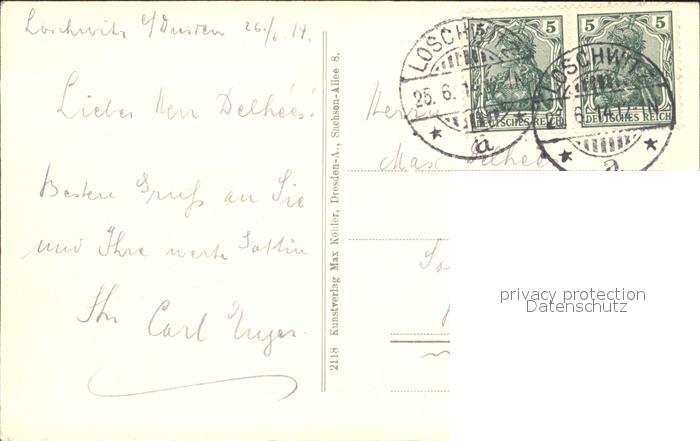 Loschwitz b/Dresden 26./6. 14.
Lieber Herr Delhées!
Besten Gruß an Sie
und Ihre werte Gattin
Ihr Carl
2118 Kunstverlag Max Köhler, Dresden-A., Sachsen-Allee 8.
5 5
DEUTSCHES REICH DEUTSCHES REICH
LOSCHWITZ
25. 6. 14
a
LOSCHWITZ
6. 14
a
Herrn
Max Delhée
privacy protection
Datenschutz